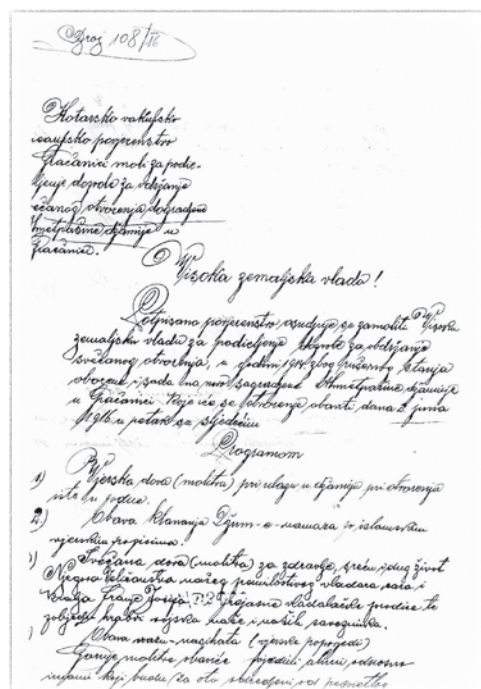 Broj 108/16
Kotarsko vakufsko
mearifsko povjerenstvo
Gračanici moli za podje-
ljenje dozvole za održanje
svečanog otvorenja dograđene
Ahmetpašine džamije u
Gračanici.
Visoka zemaljska vlada!
Potpisano povjerenstvo, usuđuje se zamoliti Visoku
zemaljsku vladu za podjeljenje dozvole za održanje
svečanog otvorenja, u godini 1914. zbog ruševnog stanja
oborene i sada na novo sagrađene Ahmetpašine džamije
u Gračanici. Koje će se otvorenje obaviti dana 2. juna
1916. u petak sa sljedećim
Programom
1) Vjerska dova (molitva) pri ulazu u džamiju pri otvorenju
iste
2.) Obava klanjanja Džum-e-namaza po islamskim
vjerskim propisima.
Svečana dova (molitva) za zdravlje, sreću i dug život
Njegova Veličanstva našeg premilostivog vladara cara i
kralja Franje Josipa I. prejasne vladalačke porodice te
pobjedu hrabre vojske naše i naših saveznika.
Obava (vjerske)
molitve obaviće odnosno
imami koji budu za to određeni od